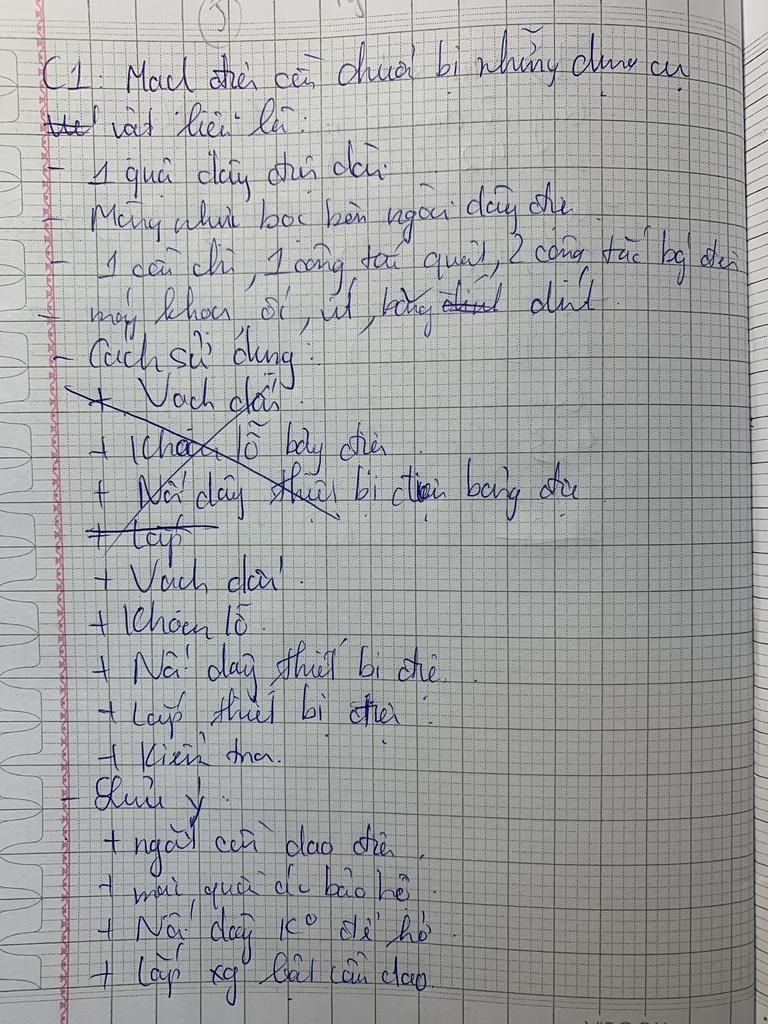 C1: Mạch điện cần chuẩn bị những dụng cụ
vật liệu là:
- 1 quận dây điện dài.
- Màng nhựa bọc bên ngoài dây điện
- 1 cầu chì, 1 công tắc quạt, 2 công tắc bg đèn
- máy khoan ốc, vít, băng dính.
- Cách sử dụng:
+ Vạch dấu.
+ Khoan lỗ bảg điện
+ Nối dây thiết bị điện bảng điện
+ Lắp
+ Vạch dấu.
+ Khoan lỗ.
+ Nối dây thiết bị điện.
+ Lắp thiết bị điện.
+ Kiểm tra.
- Lưu ý.
+ ngắt cầu dao điện.
+ mặc quần áo bảo hộ.
+ Nối dây K° để hở.
+ Lắp xg bật cầu dao.